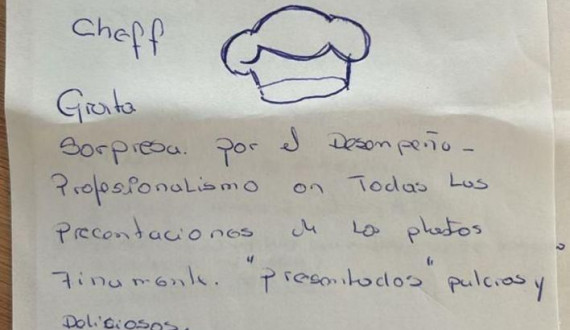 Cheff
Grata
Sorpresa. por el Desempeño -
Profesionalismo en Todas Las
Precentaciones de Los platos
Finamente. "Presentados" pulcros y
Deliciosos.